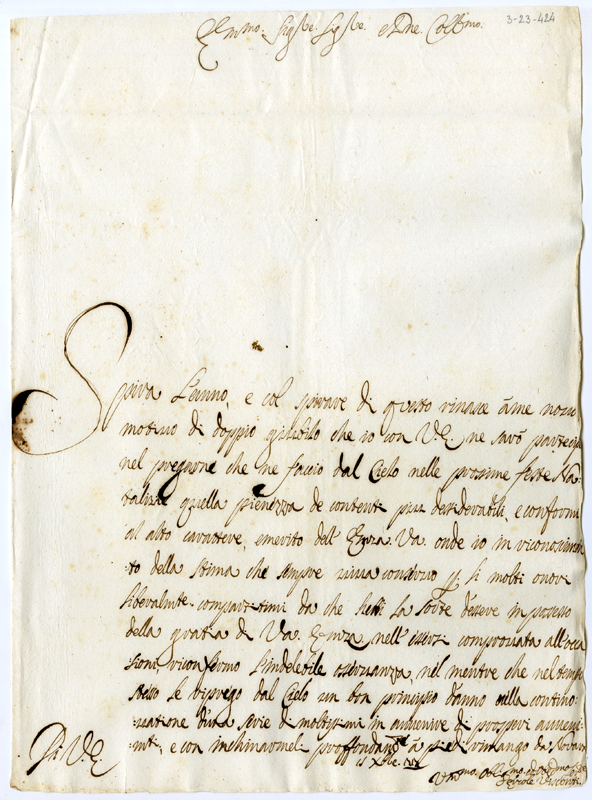 3-23-424
Emmo. Sigre. Sigre. e Pne. Collmo.
Spira l'anno, e col spirare di questo rinasce à me novo
motivo di doppio giubilo che io con V.E. ne sarò partecipe
nel pregarne che ne faccio dal Cielo nelle prossime feste Na-
talizie quella pienezza de contenti più desiderabili, e conformi
al alto carattere, e merito dell' Emza. Va. onde io in riconoscimen-
to della stima che sempre viva conservo p. li molti onori
liberalmte. compartitimi da che hebbi la sorte d'essere in possesso
della gratia di Va. Emza, nell' esser comprovata all' occa-
sioni, riconfermo l'indelebile osservanza, nel mentre che nel tempo
stesso le prego dal Cielo un bon principio d'anno colla continu-
uatione d'una serie di moltissimi in avvenire di prosperi avveni-
mti, e con inchinarmele proffondamte. à piedi rimango da
Di V.E.
Visconti